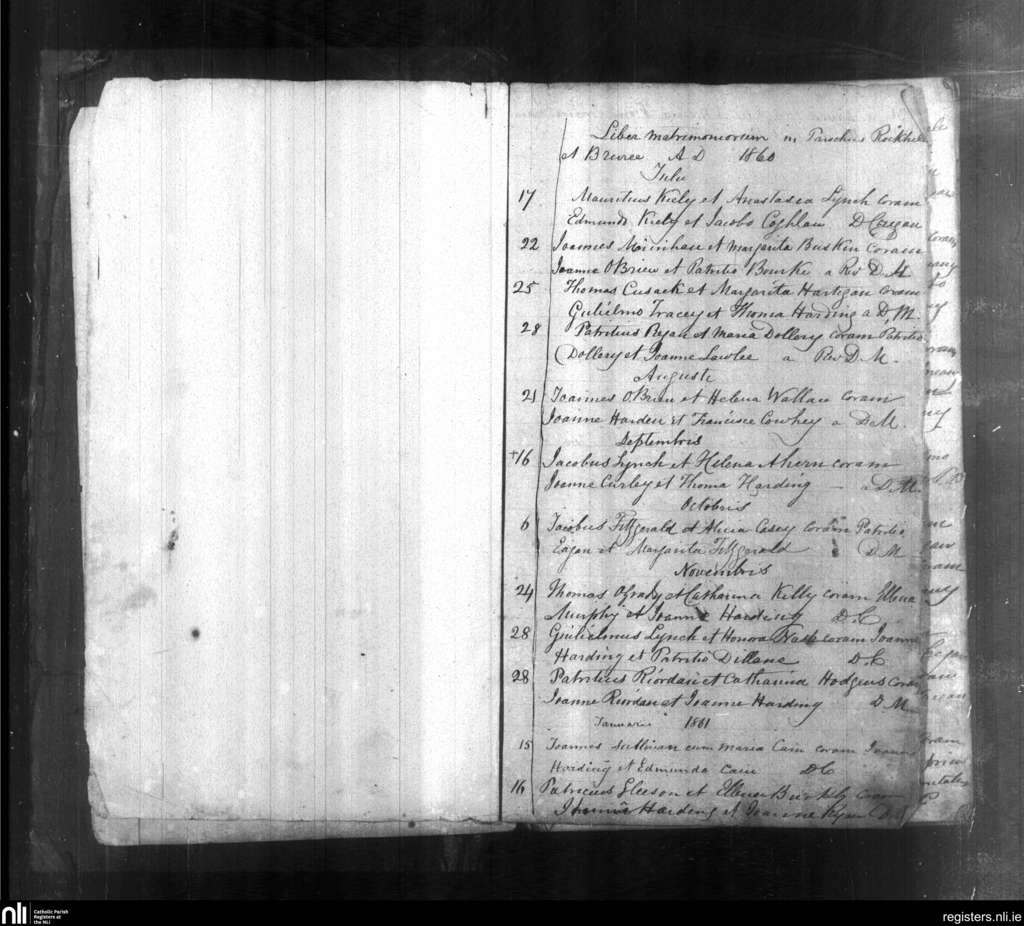 Liber Matrimoniorum in Parochiis Rockhill
et Bruree A D 1860
Julii
17 Mauritius Kiely et Anastasia Lynch coram
Edmundo Kiely et Jacobo Coghlan D Cregan
22 Joannes Moinihan et Margarita Buskin coram
Joanne O'Brien et Patritio Bourke a Rev D. M
25 Thomas Cusack et Margarita Hartigan coram
Gulielmo Tracey et Thoma Harding a D, M.
28 Patritius Ryan et Maria Dollery coram Patritio
Dollery et Joanne Lawlee a Rev D. M.
Augusti
21 Joannes O'Brien et Helena Wallace coram
Joanne Harden et Francisce Cowhey a D. M.
Septembris
+16 Jacobus Lynch et Helena Ahern coram
Joanne Curley et Thoma Harding — a D. M.
Octobris
6 Jacobus Fitzgerald et Alicia Casey coram Patritio
Eagan et Margarita Fitzgerald D M
Novembris
24 Thomas OGrady et Catharina Killy coram Ellena
Murphy et Joanne Harding D. C
28 Gulielmus Lynch et Honora Nash coram Joanne
Harding et Patritio Dillane D. C
28 Patritius Riordan et Catharina Hodgens coram
Joanne Riordan et Joanne Harding D. M
Januarii 1861
15 Joannes Sullivan cum Maria Cain coram Joanne
Harding et Edmundo Cain D C
16 Patricius Gleeson et Ellena Burke coram
Joanne Harding et Joanne Ryan
nli
Catholic Parish
Registers at
the NLI
registers.nli.ie